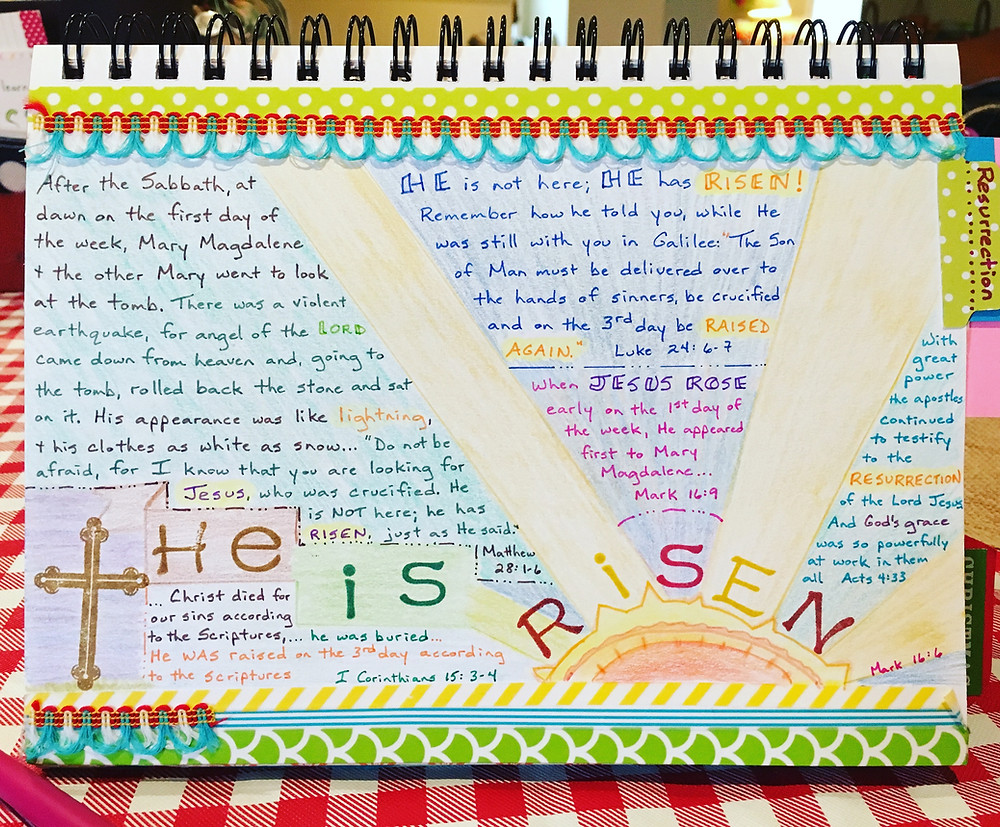 After the Sabbath, at
dawn on the first day of
the week, Mary Magdalene
+ the other Mary went to look
at the tomb. There was a violent
earthquake, for angel of the LORD
came down from heaven and, going to
the tomb, rolled back the stone and sat
on it. His appearance was like lightning,
+ his clothes as white as snow... "Do not be
afraid, for I know that you are looking for
Jesus, who was crucified. He
is NOT here; he has
RISEN, just as He said."
Matthew
28:1-6
HE is not here; HE has RISEN!
Remember how he told you, while He
was still with you in Galilee: "The Son
of Man must be delivered over to
the hands of sinners, be crucified
and on the 3rd day be RAISED
AGAIN." Luke 24:6-7
When JESUS ROSE
early on the 1st day of
the week, He appeared
first to Mary
Magdalene...
Mark 16:9
With
great
power
the apostles
continued
to testify
to the
RESURRECTION
of the Lord Jesus
And God's grace
was so powerfully
at work in them
all Acts 4:33
He
is
RiSEN
Mark 16:6
... Christ died for
our sins according
to the Scriptures,... he was buried...
He WAS raised on the 3rd day according
to the Scriptures
I Corinthians 15:3-4
Resurrection
learn
CHRISTMAS